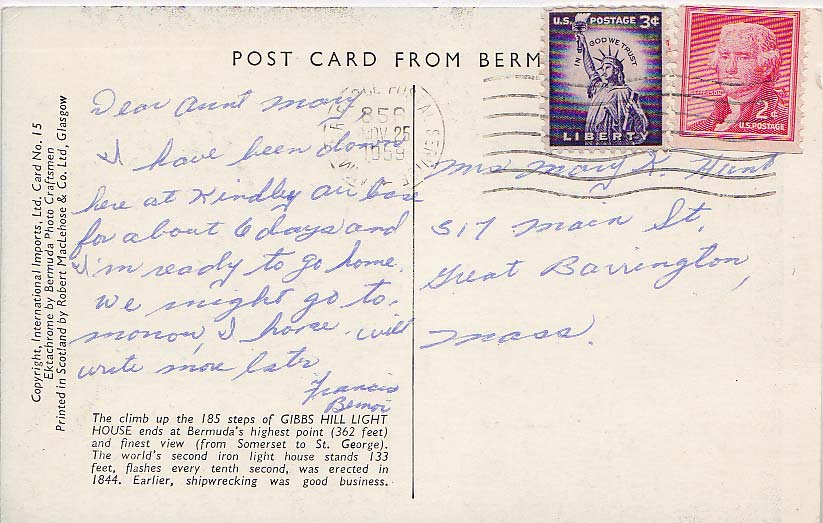 POST CARD FROM BERM
U.S. POSTAGE 3¢
IN GOD WE TRUST
LIBERTY
JEFFERSON
2¢
U.S. POSTAGE
NOV 25
1959
Dear Aunt Mary
I have been down
here at Kindley air base
for about 6 days and
I'm ready to go home.
We might go to.
morrow, I hope. will
write more later
Francis
Mrs Mary K. Hunt
317 Main St.
Great Barrington,
Mass.
The climb up the 185 steps of GIBBS HILL LIGHT
HOUSE ends at Bermuda's highest point (362 feet)
and finest view (from Somerset to St. George).
The world's second iron light house stands 133
feet, flashes every tenth second, was erected in
1844. Earlier, shipwrecking was good business.
Copyright, International Imports, Ltd. Card No. 15
Ektachrome by Bermuda Photo Craftsmen
Printed in Scotland by Robert MacLehose & Co. Ltd, Glasgow